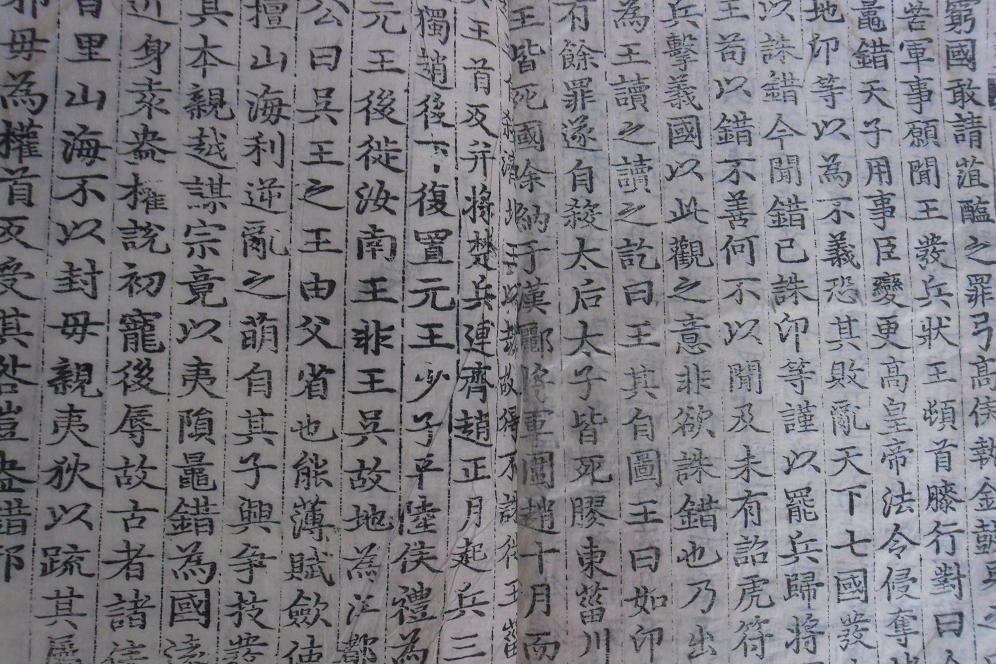 窮國敢請葅醢之罪弓高侯執金鼓見
苦軍事願聞王發兵狀王頓首膝行對曰
鼂錯天子用事臣變更高皇帝法令侵奪
地卬等以為不義恐其敗亂天下七國發
以誅錯今聞錯已誅卬等謹以罷兵歸將
王苟以錯不善何不以聞及未有詔虎符
兵擊義國以此觀之意非欲誅錯也乃出
為王讀之讀之訖曰王其自圖王曰如卬
有餘罪遂自殺太后太子皆死膠東菑川
王皆死國除納于漢酈將軍圍趙十月而
王以故得不誅徙王菑
王首反并將楚兵連齊趙正月起兵三
獨趙後下復置元王少子平陸侯禮為
元王後徙汝南王非王吳故地為江都
公曰吳王之王由父省也能薄賦歛使
擅山海利逆亂之萌自其子興爭技發
其本親越謀宗竟以夷隕鼂錯為國遠
近身袁盎權說初寵後辱故古者諸侯
百里山海不以封毋親夷狄以疏其屬
邪毋為權首反受其咎豈盎錯邪